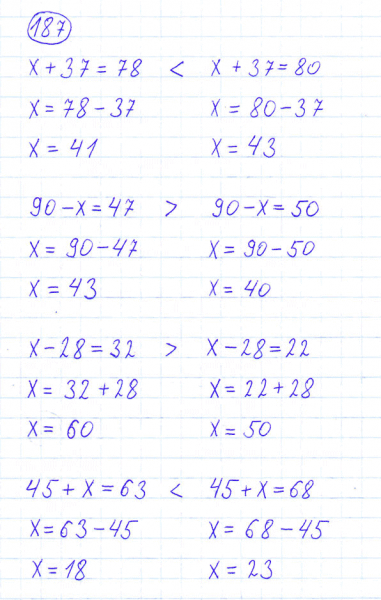 187
x + 37 = 78 < x + 37 = 80
x = 78 - 37 x = 80 - 37
x = 41 x = 43
90 - x = 47 > 90 - x = 50
x = 90 - 47 x = 90 - 50
x = 43 x = 40
x - 28 = 32 > x - 28 = 22
x = 32 + 28 x = 22 + 28
x = 60 x = 50
45 + x = 63 < 45 + x = 68
x = 63 - 45 x = 68 - 45
x = 18 x = 23